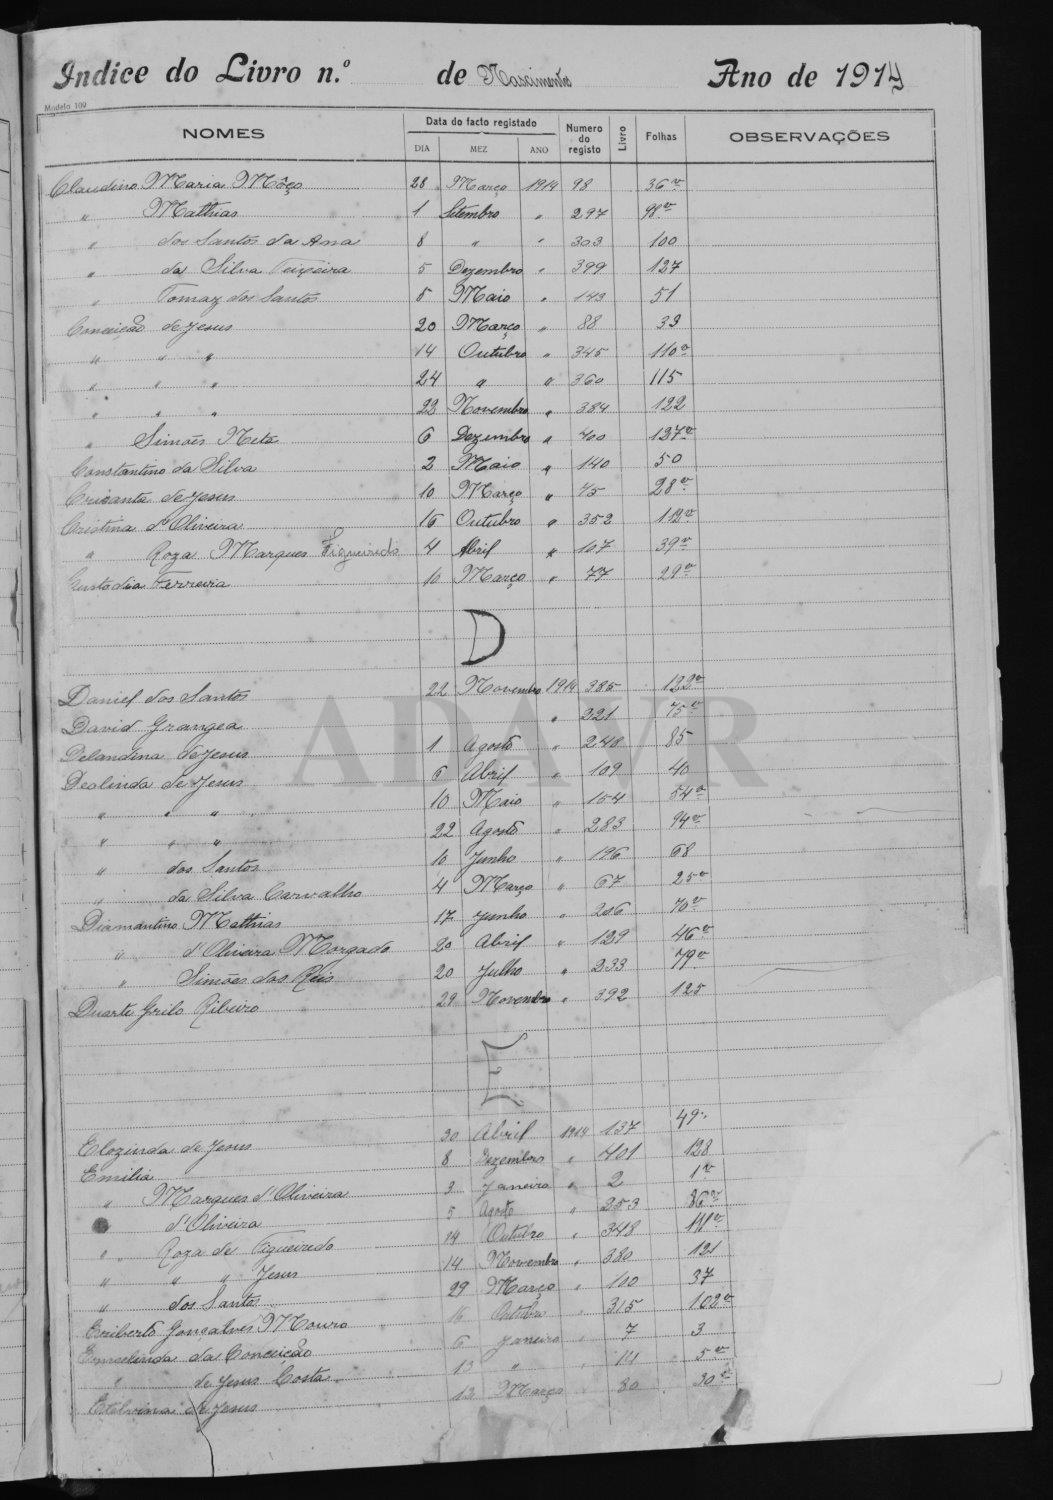 Indice do Livro n.º de Nascimentos Ano de 1914
Modelo 109
NOMES Data do facto registado Numero do registo Livro Folhas OBSERVAÇÕES
DIA MEZ ANO
Claudino Maria Môço 28 Março 1914 98 36v
" Mathias 1 Setembro " 297 98v
" dos Santos da Ana 8 " " 303 100
" da Silva Teixeira 5 Dezembro " 399 127
" Tomaz dos Santos 5 Maio " 143 51
Conceição de Jesus 20 Março " 88 33
" " " 14 Outubro " 345 110v
" " " 24 " " 360 115
" " " 22 Novembro " 384 122
" Simões Neta 6 Dezembro " 400 127v
Constantino da Silva 2 Maio " 140 50
Crisanta de Jesus 10 Março " 75 28v
Cristina d'Oliveira 16 Outubro " 352 112v
" Roza Marques Figueiredo 4 Abril " 107 39v
Custodia Ferreira 10 Março " 77 29v
D
Daniel dos Santos 22 Novembro 1914 385 122v
David Grangea " 221 75v
Delandina de Jesus 1 Agosto " 248 85
Deolinda de Jesus 6 Abril " 109 40
" " " 10 Maio " 154 54v
" " " 22 Agosto " 283 94v
" dos Santos 10 Junho " 196 68
" da Silva Carvalho 4 Março " 67 25v
Diamantino Mathias 17 Junho " 206 70v
" d'Oliveira Morgado 20 Abril " 129 46v
" Simões dos Reis 20 Julho " 233 79v
Duarte Grilo Ribeiro 29 Novembro " 392 125
E
Elozinda de Jesus 30 Abril 1914 137 49v
Emilia 8 Dezembro " 401 128
" Marques d'Oliveira 3 Janeiro " 2 1v
d'Oliveira 5 Agosto " 253 86v
" Roza de Figueiredo 14 Outubro " 348 111v
" " " Jesus 14 Novembro " 380 121
" dos Santos 29 Março " 100 37
Eriberto Gonçalves Mouro 16 Outubro " 315 102v
Ermelinda da Conceição 6 Janeiro " 7 3
" de Jesus Costa 13 " " 14 5v
Etelvina de Jesus 12 Março 80 30v
ADAVR